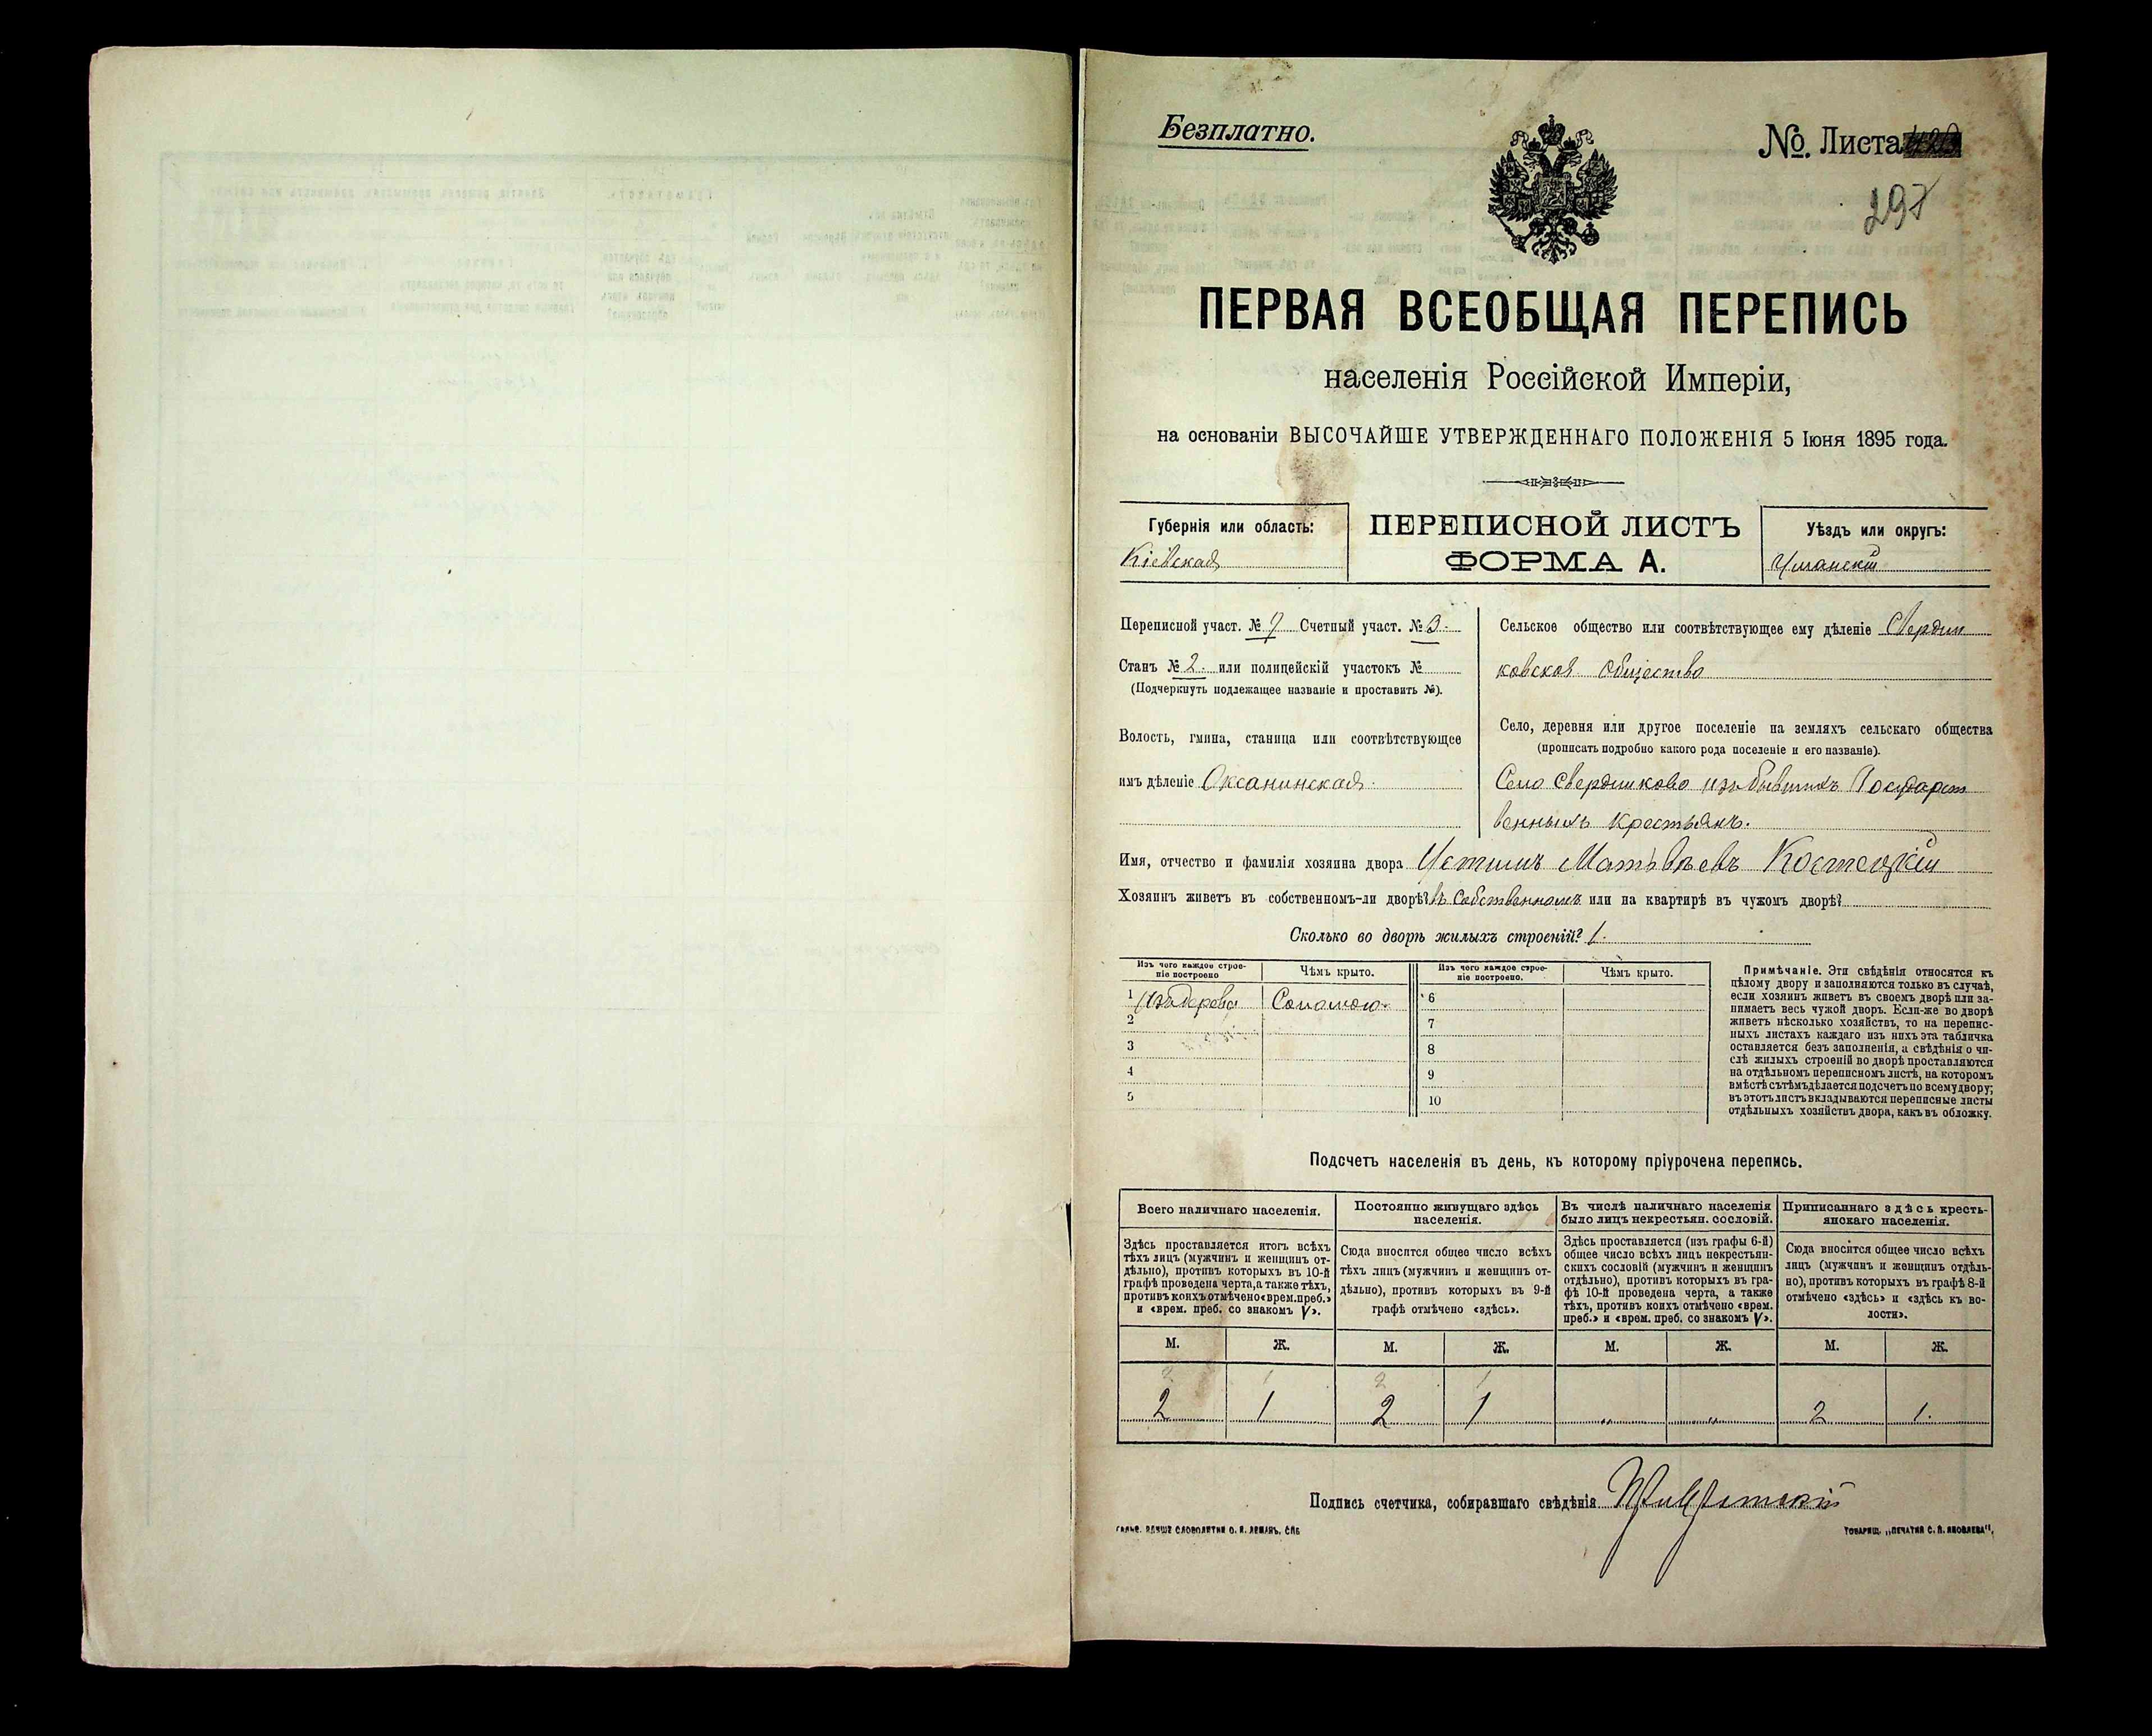 Безплатно.
№. Листа
297
ПЕРВАЯ ВСЕОБЩАЯ ПЕРЕПИСЬ
населенія Россійской Имперіи,
на основаніи ВЫСОЧАЙШЕ УТВЕРЖДЕННАГО ПОЛОЖЕНІЯ 5 Іюня 1895 года.
Губернія или область:
Кіевская
ПЕРЕПИСНОЙ ЛИСТЪ
ФОРМА А.
Уѣздъ или округъ:
Уманскій
Переписной участ. № 7 Счетный участ. № 3.
Станъ № 2. или полицейскій участокъ №
(Подчеркнуть подлежащее названіе и проставить №).
Волость, гмина, станица или соотвѣтствующее
имъ дѣленіе Оксанинская.
Сельское общество или соотвѣтствующее ему дѣленіе Свердли
ковское общество
Село, деревня или другое поселеніе на земляхъ сельскаго общества
(прописать подробно какого рода поселеніе и его названіе).
Село Свердликово изъ бывшихъ Государст
венныхъ крестьянъ.
Имя, отчество и фамилія хозяина двора Устинъ Матвѣевъ Костецкій
Хозяинъ живетъ въ собственномъ-ли дворѣ? въ собственномъ или на квартирѣ въ чужомъ дворѣ?
Сколько во дворѣ жилыхъ строеній? 1.
Изъ чего каждое строе-
ніе построено
Чѣмъ крыто.
Изъ чего каждое строе-
ніе построено.
Чѣмъ крыто.
1 Изъ дерева Соломою. 6
2 7
3 8
4 9
5 10
Примѣчаніе. Эти свѣдѣнія относятся къ
цѣлому двору и заполняются только въ случаѣ,
если хозяинъ живетъ въ своемъ дворѣ или за-
нимаетъ весь чужой дворъ. Если-же во дворѣ
живетъ нѣсколько хозяйствъ, то на перепис-
ныхъ листахъ каждаго изъ нихъ эта табличка
оставляется безъ заполненія, а свѣдѣнія о чи-
слѣ жилыхъ строеній во дворѣ проставляются
на отдѣльномъ переписномъ листѣ, на которомъ
вмѣстѣ съ тѣмъ дѣлается подсчетъ по всему двору;
въ этотъ листъ вкладываются переписные листы
отдѣльныхъ хозяйствъ двора, какъ въ обложку.
Подсчетъ населенія въ день, къ которому пріурочена перепись.
Всего наличнаго населенія.
Здѣсь проставляется итогъ всѣхъ
тѣхъ лицъ (мужчинъ и женщинъ от-
дѣльно), противъ которыхъ въ 10-й
графѣ проведена черта, а также тѣхъ,
противъ коихъ отмѣчено «врем. преб.»
и «врем. преб. со знакомъ V».
Постоянно живущаго здѣсь
населенія.
Сюда вносится общее число всѣхъ
тѣхъ лицъ (мужчинъ и женщинъ от-
дѣльно), противъ которыхъ въ 9-й
графѣ отмѣчено «здѣсь».
Въ числѣ наличнаго населенія
было лицъ некрестьян. сословій.
Здѣсь проставляется (изъ графы 6-й)
общее число всѣхъ лицъ некрестьян-
скихъ сословій (мужчинъ и женщинъ
отдѣльно), противъ которыхъ въ гра-
фѣ 10-й проведена черта, а также
тѣхъ, противъ коихъ отмѣчено «врем.
преб.» и «врем. преб. со знакомъ V».
Приписаннаго здѣсь кресть-
янскаго населенія.
Сюда вносится общее число всѣхъ
лицъ (мужчинъ и женщинъ отдѣль-
но), противъ которыхъ въ графѣ 8-й
отмѣчено «здѣсь» и «здѣсь къ во-
лости».
М. Ж. М. Ж. М. Ж. М. Ж.
2 1 2 1
2 1 2 1 „ „ 2 1.
Подпись счетчика, собиравшаго свѣдѣнія
ТОВАРИЩ. „ПЕЧАТНЯ С. П. ЯКОВЛЕВА".